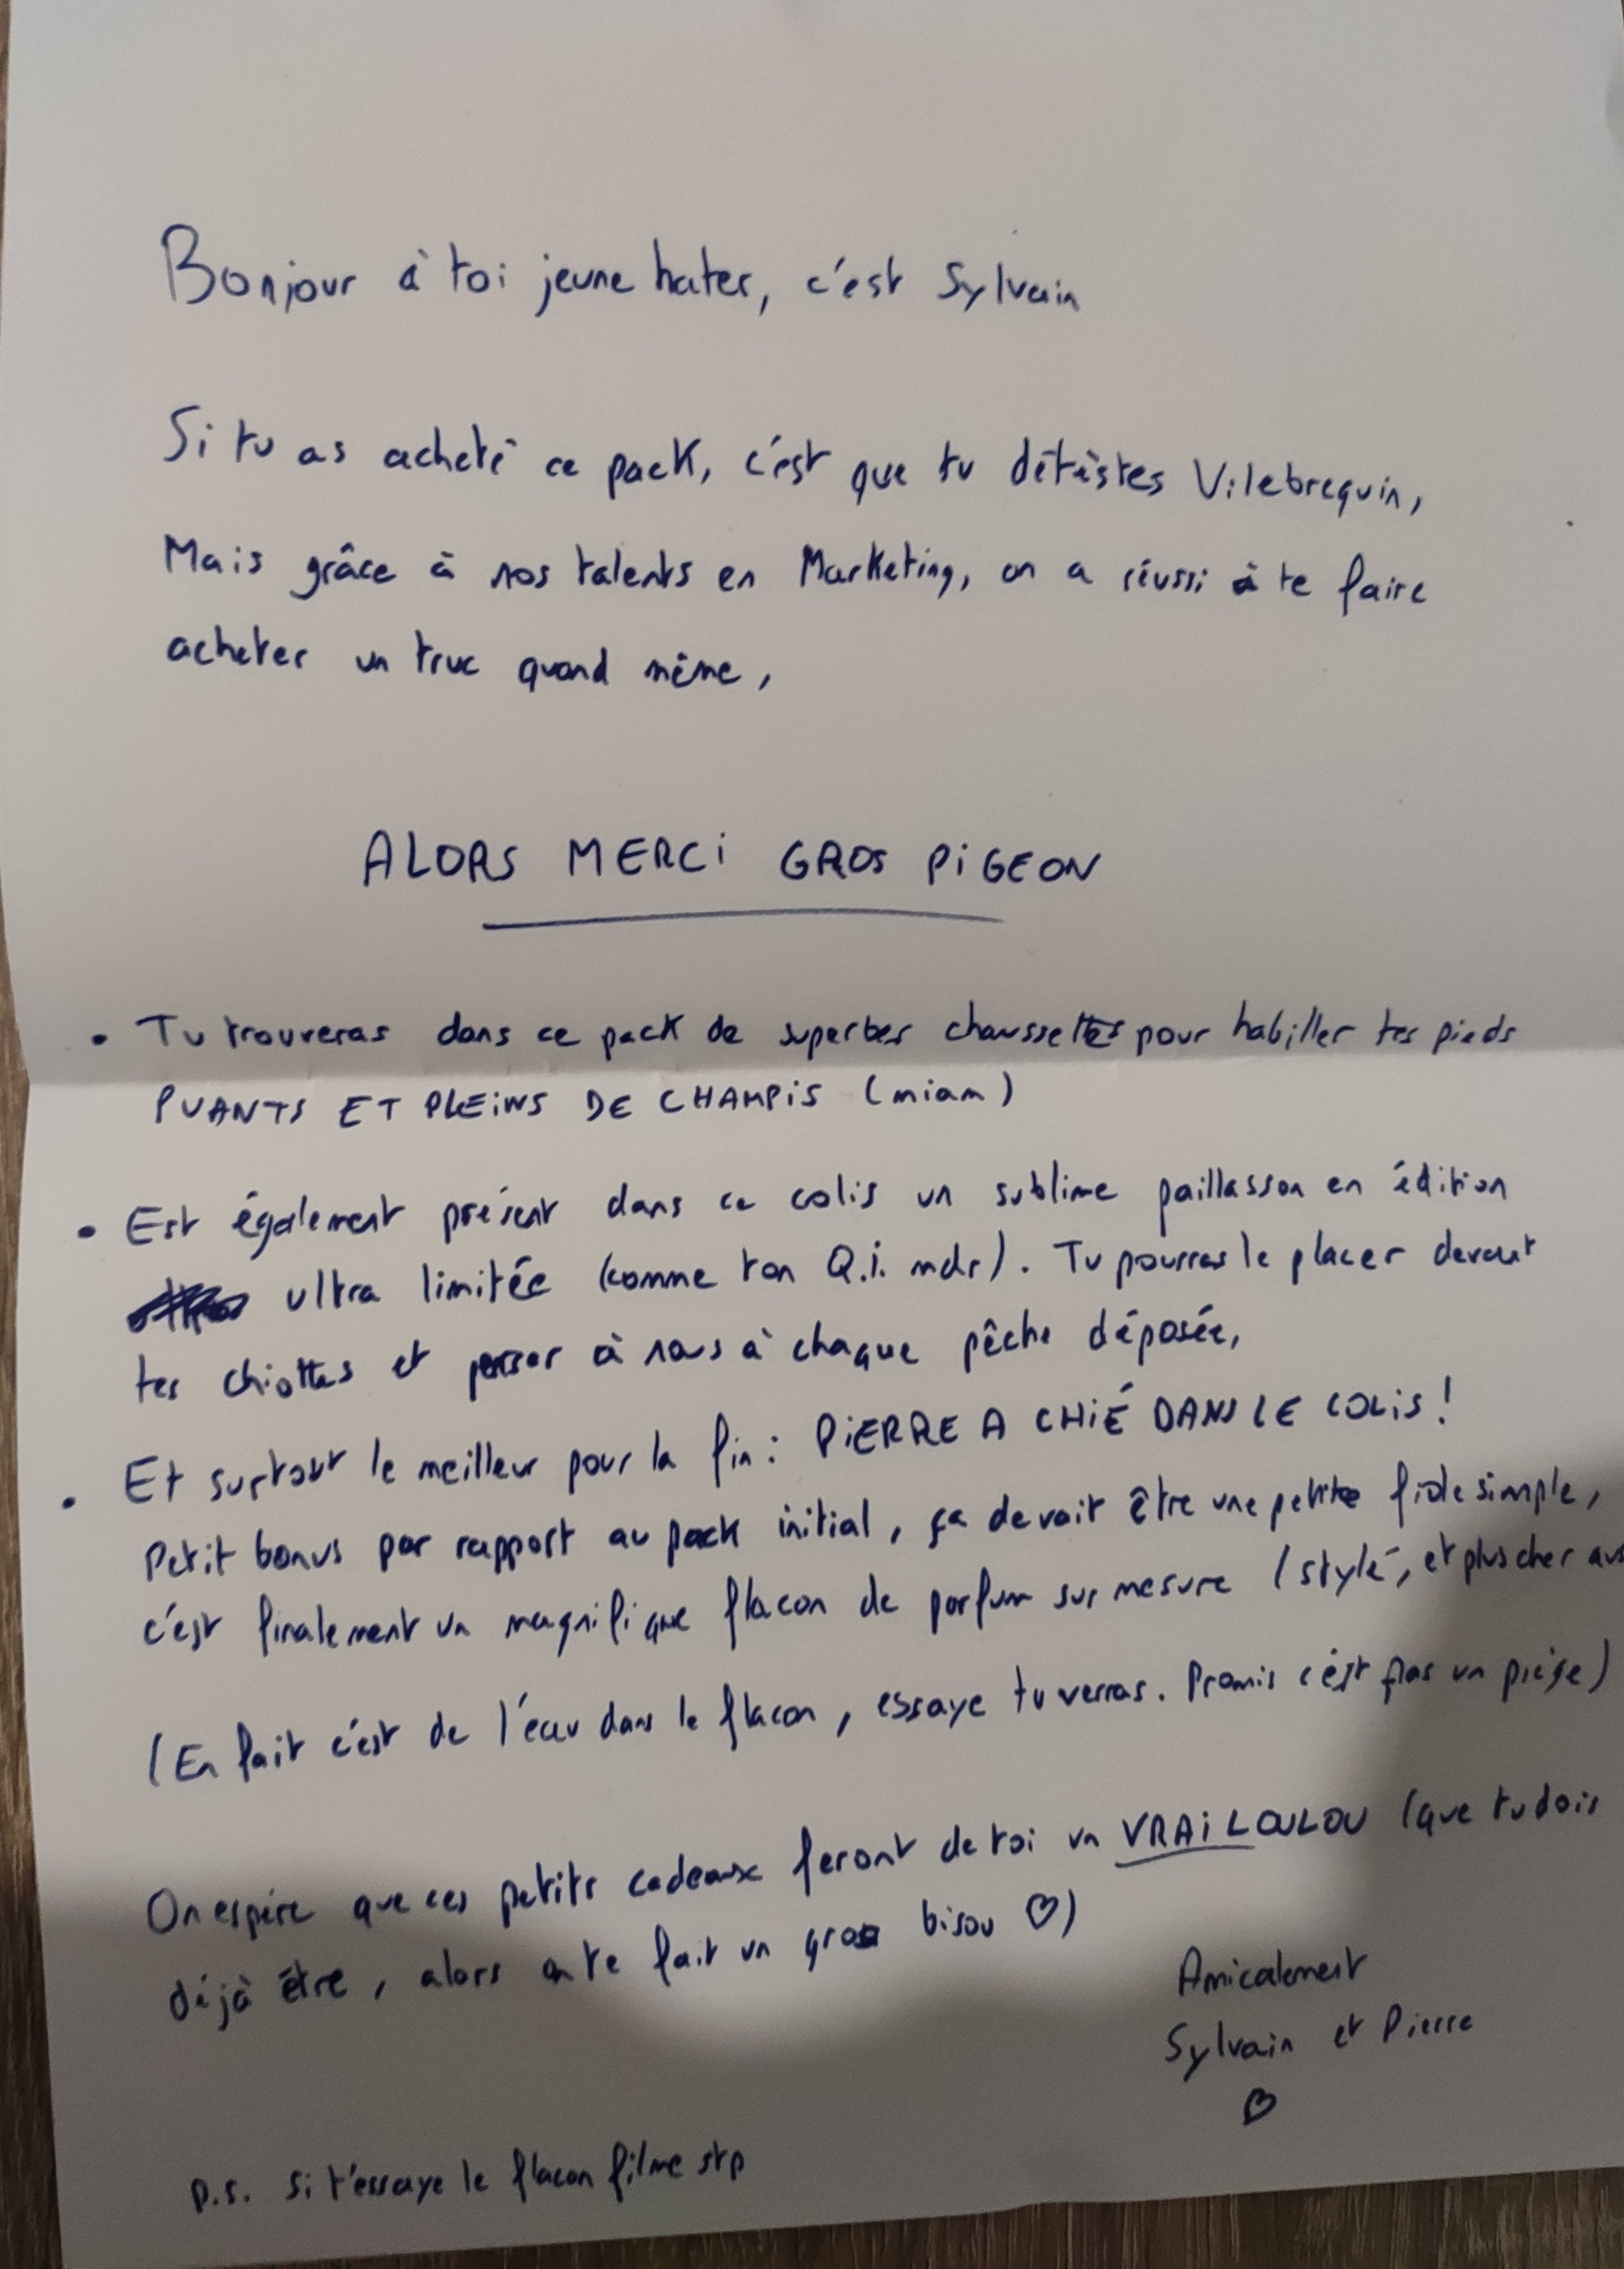 Bonjour à toi jeune hater, c'est Sylvain
Si tu as acheté ce pack, c'est que tu détèstes Vilebrequin,
Mais grâce à nos talents en Marketing, on a réussi à te faire
acheter un truc quand même,
ALORS MERCi GROS PiGEON
• Tu trouveras dans ce pack de superbes chaussettes pour habiller tes pieds
PUANTS ET PLEiNS DE CHAMPiS (miam)
• Est également présent dans ce colis un sublime paillasson en édition
ultra limitée (comme ton Q.i. mdr). Tu pourras le placer devant
tes chiottes et penser à nous à chaque pêche déposée,
• Et surtout le meilleur pour la fin : PiERRE A CHiÉ DANS LE COLiS !
Petit bonus par rapport au pack initial, ça devait être une petite fiole simple,
c'est finalement un magnifique flacon de parfum sur mesure (stylé, et plus cher
(En fait c'est de l'eau dans le flacon, essaye tu verras. Promis c'est pas un piège)
On espère que ces petits cadeaux feront de toi un VRAi LOULOU (que tu dois
déjà être, alors on te fait un gros bisou ♡)
Amicalement
Sylvain et Pierre
♡
P.S. Si t'essaye le flacon filme stp